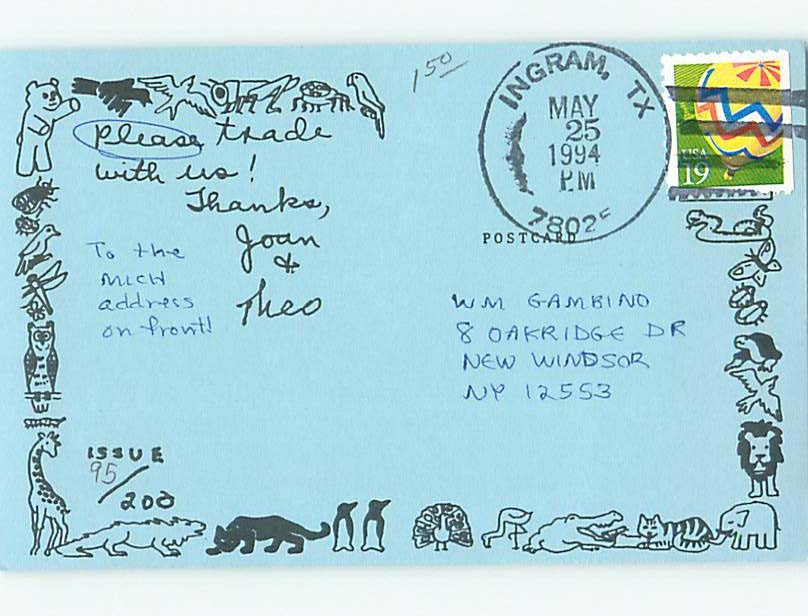 1 50
INGRAM, TX
MAY
25
1994
PM
7802
USA
19
please trade
with us!
Thanks,
Joan
&
Theo
To the
MICH
address
on front!
POSTCARD
WM GAMBINO
8 OAKRIDGE DR
NEW WINDSOR
NY 12553
ISSUE
95/200